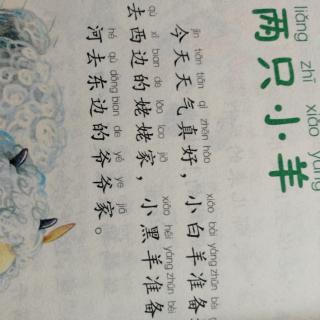 liǎng zhī xiǎo yáng
两只小羊
jīn tiān tiān qì zhēn hǎo xiǎo bái yáng zhǔn bèi
今天天气真好，小白羊准备
qù xī bian de lǎo lao jiā xiǎo hēi yáng zhǔn bèi
去西边的姥姥家，小黑羊准备
hé qù dōng bian de yé ye jiā
河去东边的爷爷家。